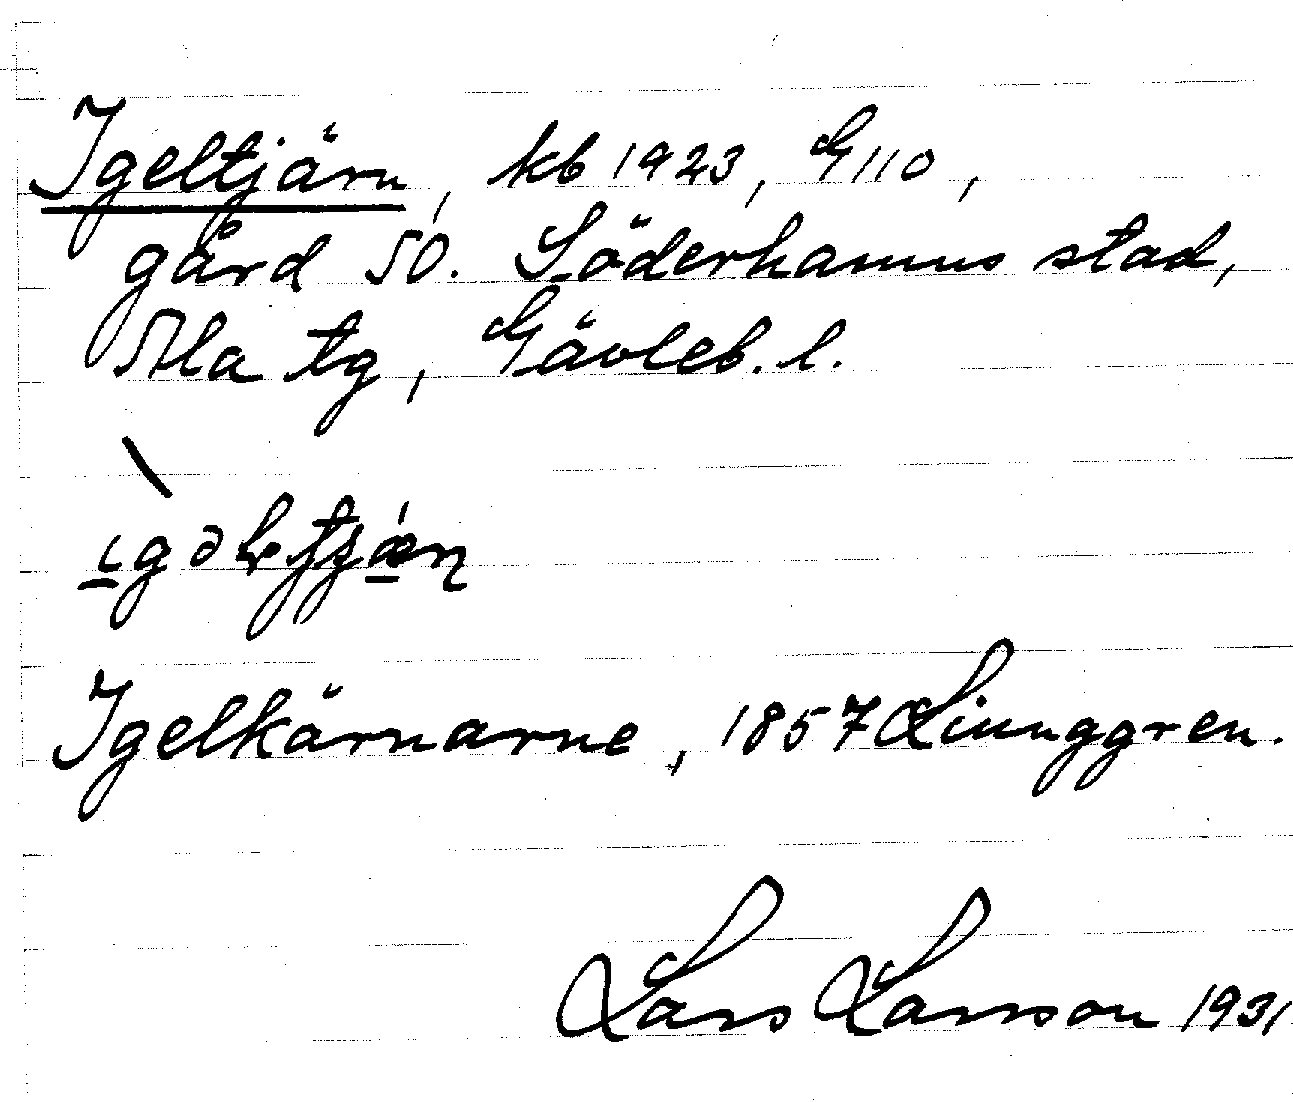 Igeltjärn, kb 1923, G 110,
gård 50. Söderhamns stad,
Ala tg, Gävleb. l.
Igelkärnarne, 1857 Ljunggren.
Lars Larsson 1931